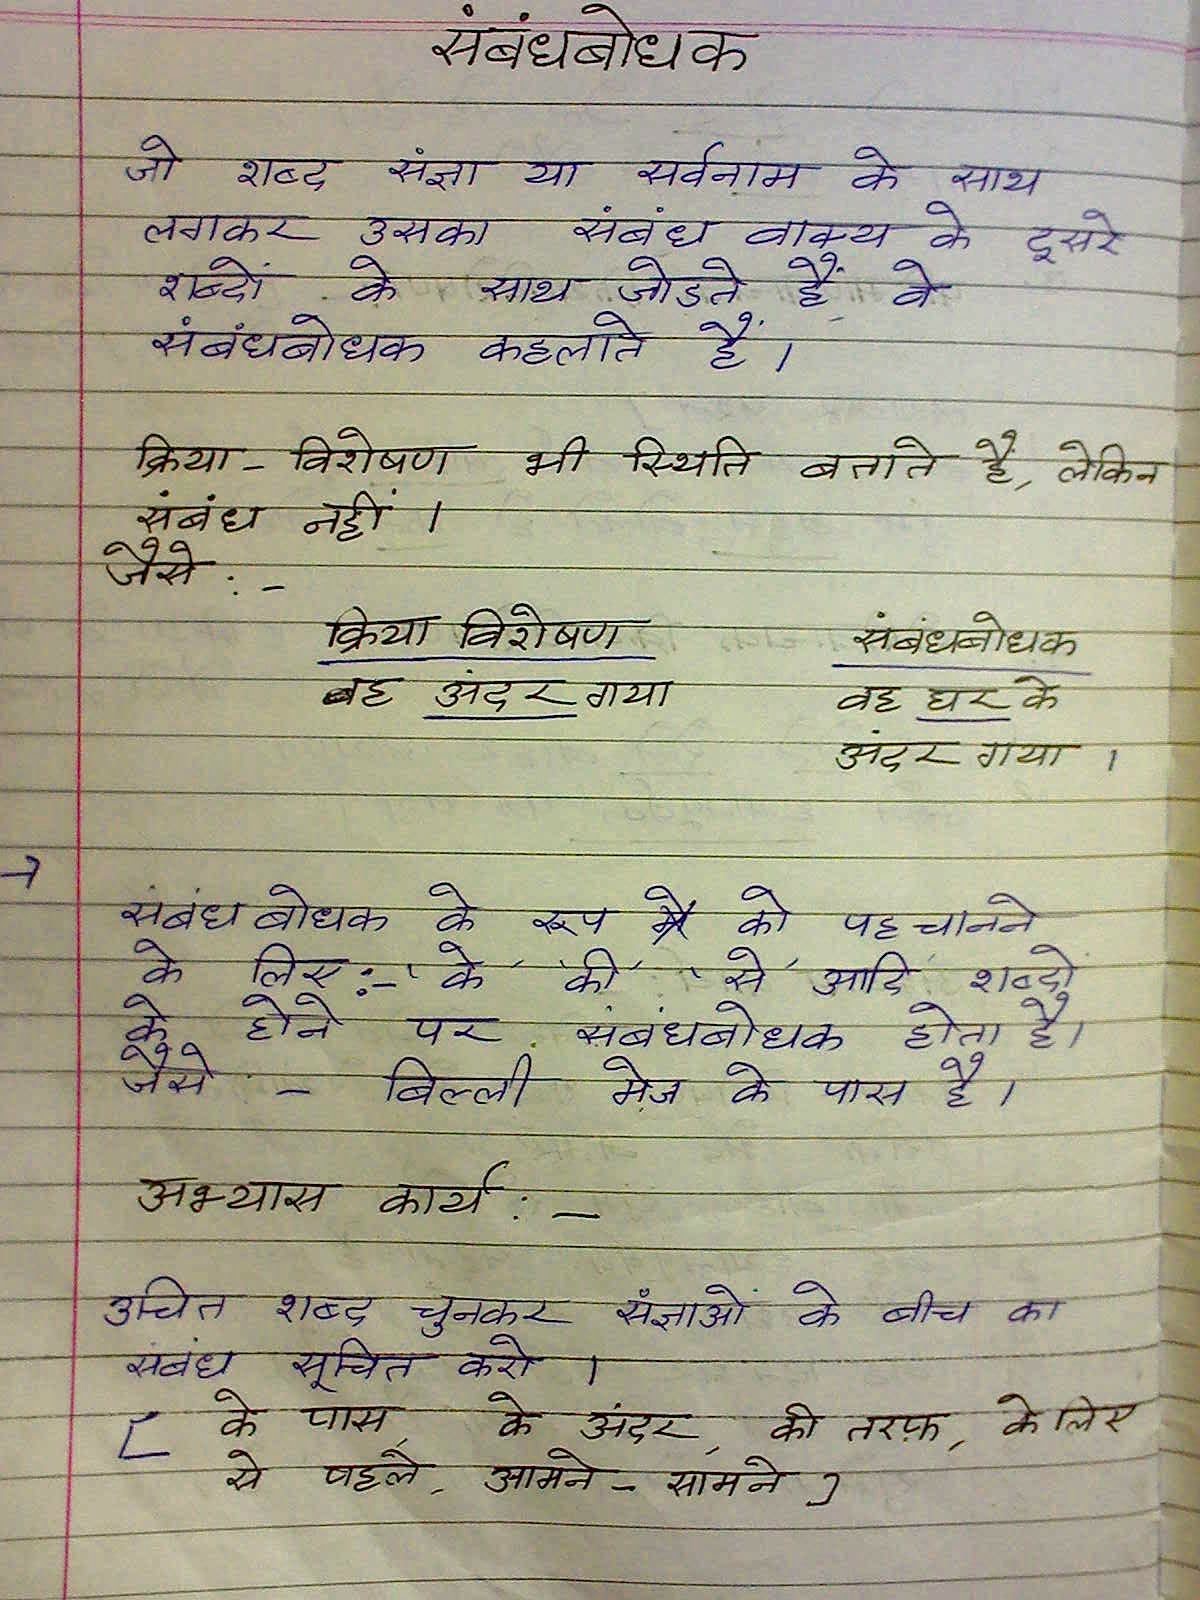 संबंधबोधक
जो शब्द संज्ञा या सर्वनाम के साथ
लगकर उसका संबंध वाक्य के दूसरे
शब्दों के साथ जोडते हैं वे
संबंधबोधक कहलाते हैं।
क्रिया - विशेषण भी स्थिति बताते हैं, लेकिन
संबंध नहीं।
जैसे :-
क्रिया विशेषण संबंधबोधक
वह अंदर गया वह घर के
अंदर गया ।
→
संबंध बोधक के रूप को पहचानने
के लिए :- 'के' 'की' 'से' आदि शब्दों
के होने पर संबंधबोधक होता है।
जैसे - बिल्ली मेज के पास है।
अभ्यास कार्य :-
उचित शब्द चुनकर संज्ञाओं के बीच का
संबंध सूचित करो ।
[ के पास, के अंदर, की तरफ़, के लिए
से पहले, आमने - सामने ]